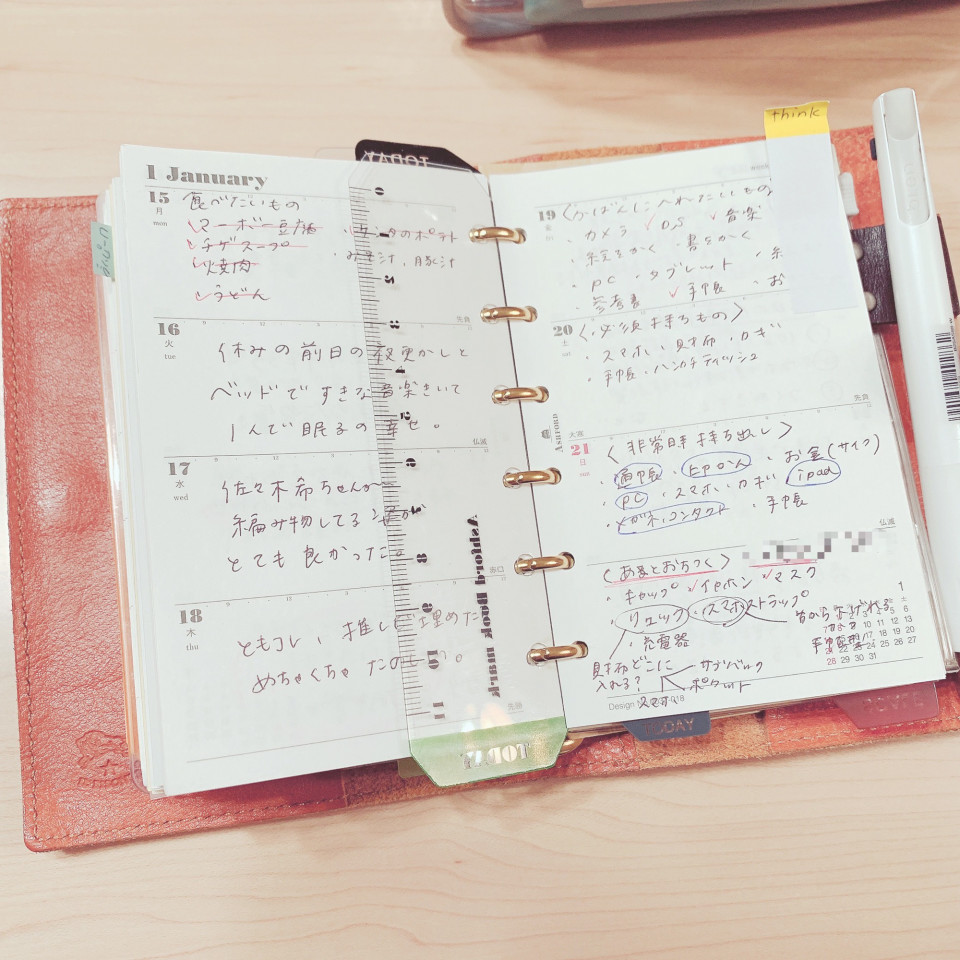 1 January
15
月
mon
食べたいもの
マーボー豆腐
チゲスープ
焼肉
うどん
みそ汁、豚汁
先負
16
火
tue
休みの前日の夜更かしと
ベッドですきな音楽きいて
1人で眠るの幸せ。
仏滅
17
水
wed
佐々木希ちゃんが
編み物してる
とても良かった。
18
木
thu
めちゃくちゃ
先勝
Ashford Book mark
TODAY
think
19
金
fri
〈かばんに入れたいもの
・カメラ ✓DS ✓音楽
・絵をかく ・書をかく
・PC ・タブレット ・糸
・参考書 ✓手帳 ・お
20
土
sat
〈必須持ちもの〉
・スマホ、財布、カギ
・手帳、ハンカチティッシュ
先負
大寒
21
日
sun
〈非常時持ち出し〉
・通帳 ・印かん ・お金(サイフ)
・PC ・スマホ、カギ ipad
・メガネ、コンタクト ・手帳
仏滅
〈あるとおちつく〉
・キャップ ✓イヤホン ✓マスク
・リュック ・スマホストラップ
・充電器
財布どこに
入れる?
サブバック
ポケット
スマホ
Ashford
1
2 3 4 5 6
10 11 12 13
17 18 19 20
24 25 26 27
28 29 30 31
TODAY